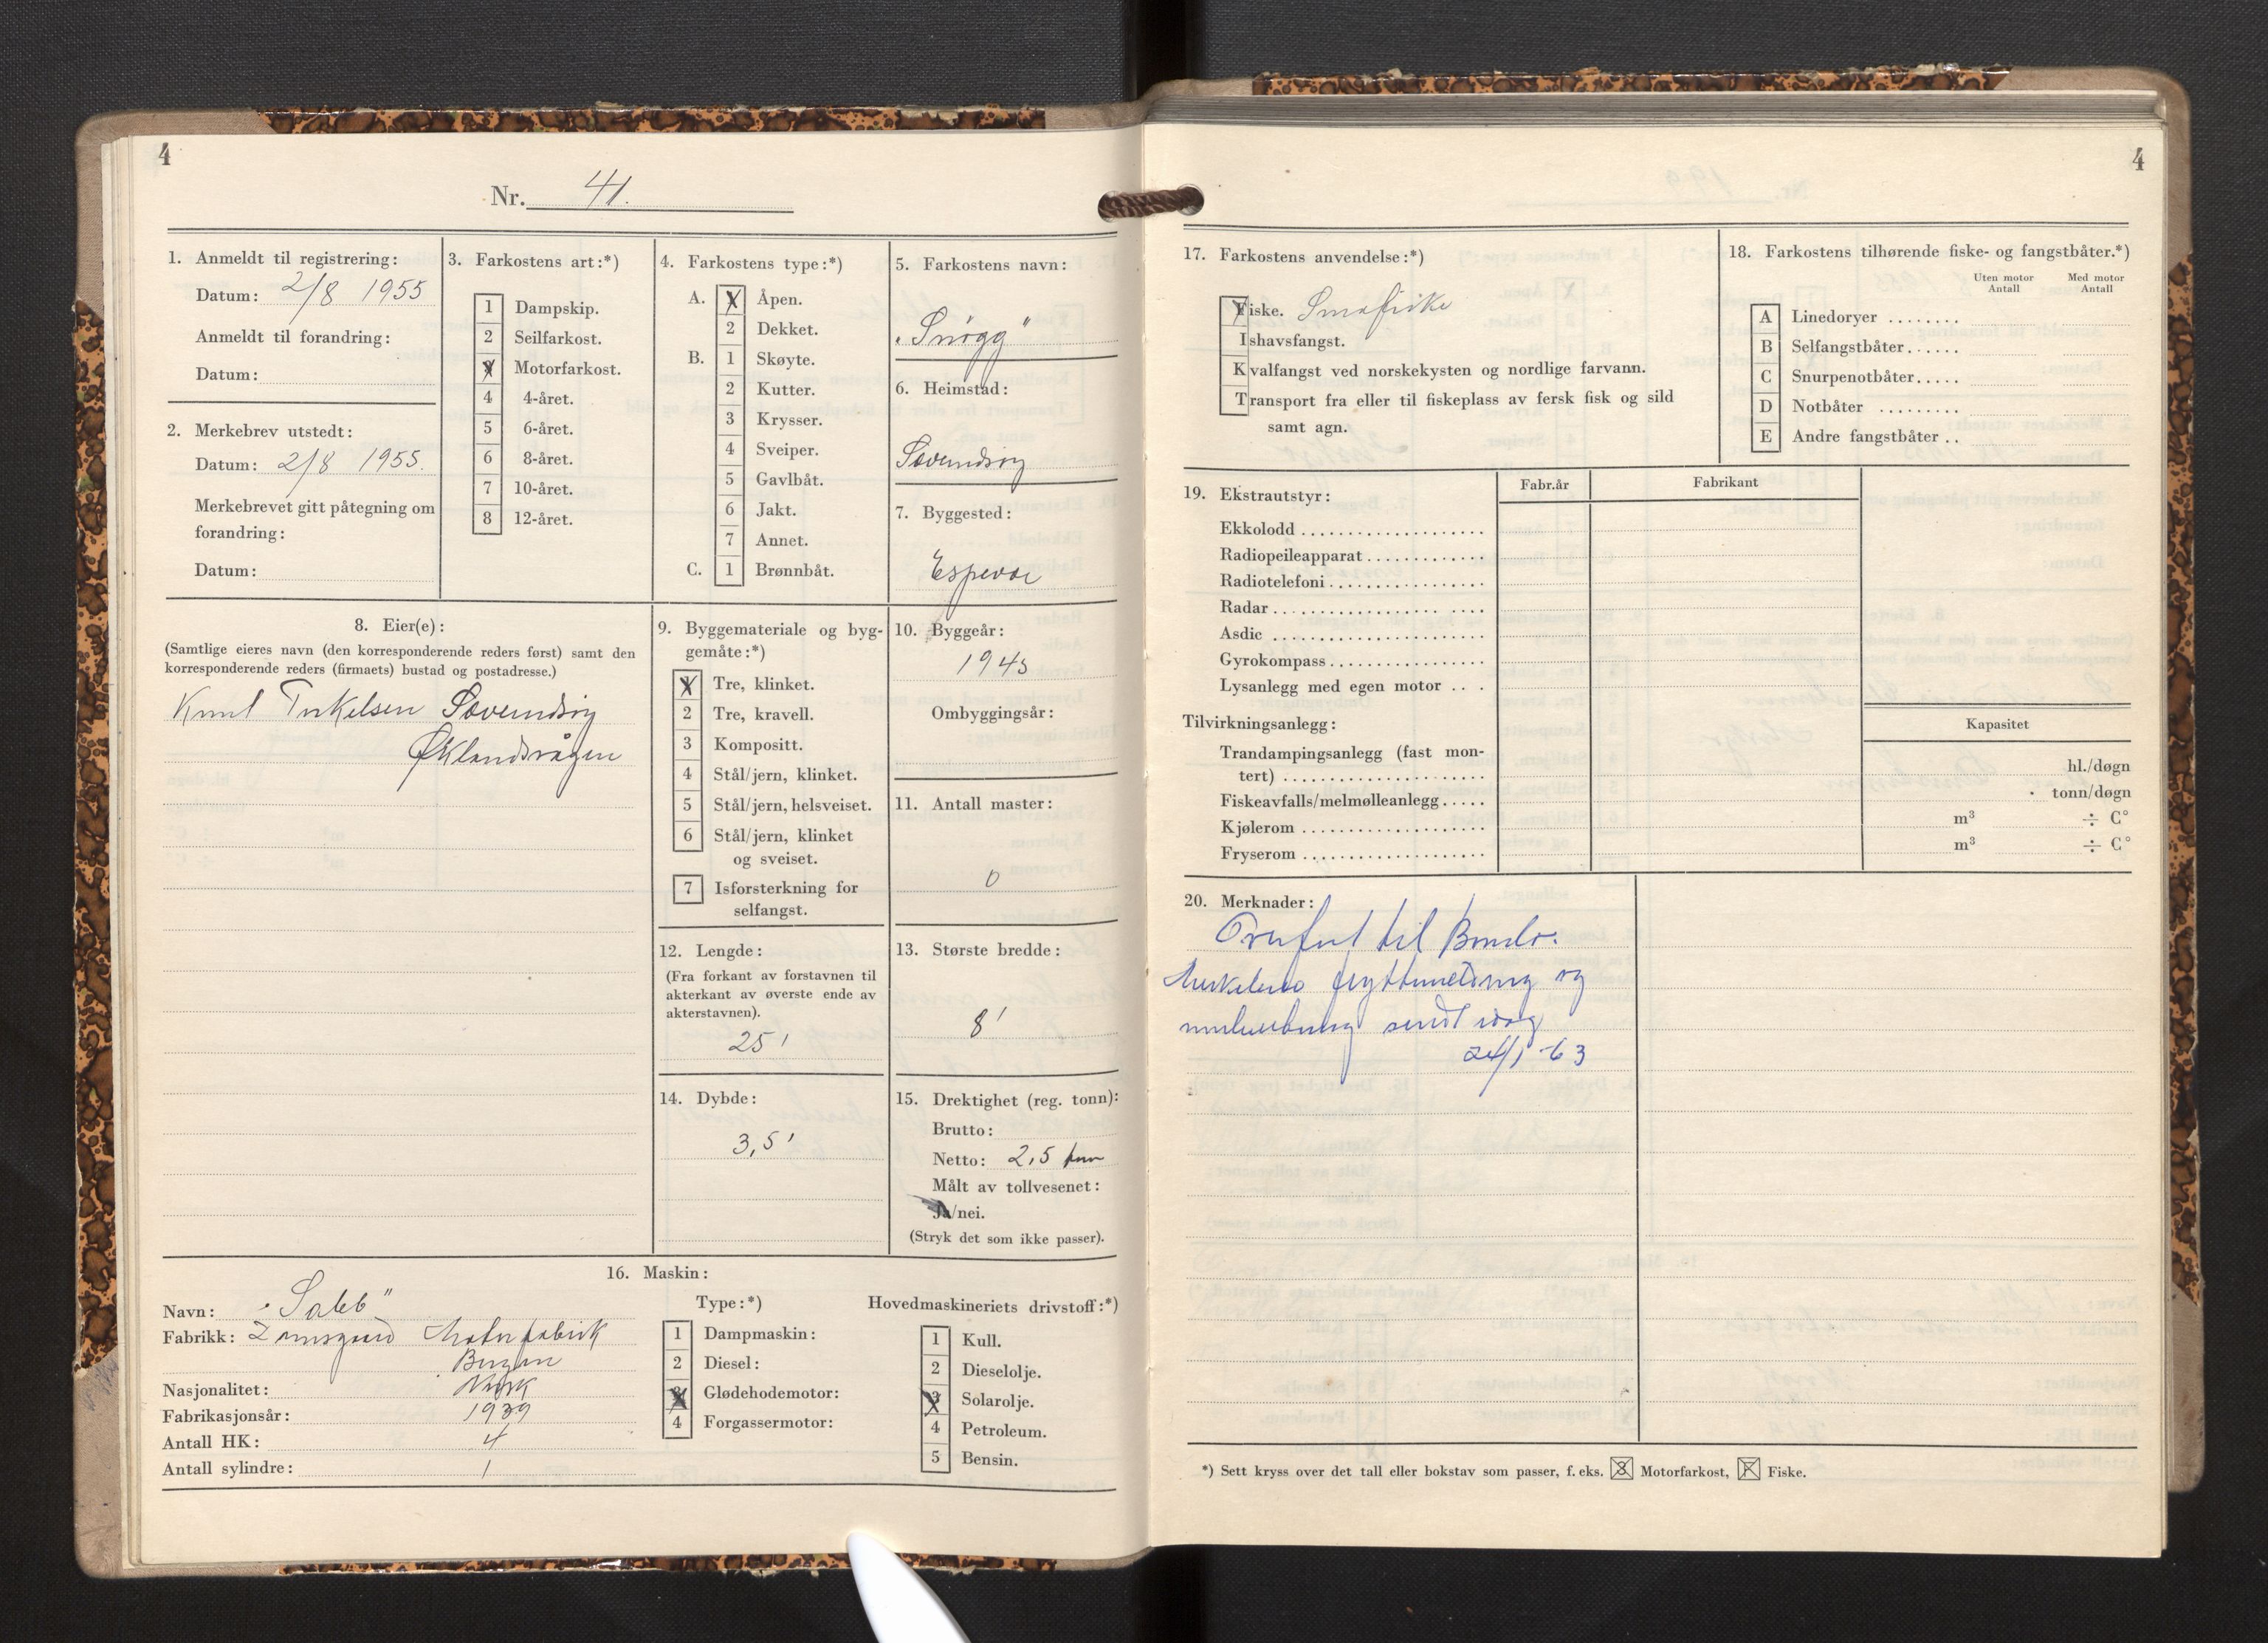 4
Nr. 41.
1. Anmeldt til registrering:
Datum: 2/8 1955
Anmeldt til forandring:
Datum:
2. Merkebrev utstedt:
Datum: 2/8 1955.
Merkebrevet gitt påtegning om
forandring:
Datum:
3. Farkostens art:*)
1 Dampskip.
2 Seilfarkost.
3 Motorfarkost.
4 4-året.
5 6-året.
6 8-året.
7 10-året.
8 12-året.
4. Farkostens type:*)
A. 1 Åpen.
2 Dekket.
B. 1 Skøyte.
2 Kutter.
3 Krysser.
4 Sveiper.
5 Gavlbåt.
6 Jakt.
7 Annet.
C. 1 Brønnbåt.
5. Farkostens navn:
„Snögg"
6. Heimstad:
7. Byggested:
Espevær
8. Eier(e):
(Samtlige eieres navn (den korresponderende reders først) samt den
korresponderende reders (firmaets) bustad og postadresse.)
Knut Terkelsen
Øklandsvågen
9. Byggemateriale og byg-
gemåte:*)
1 Tre, klinket.
2 Tre, kravell.
3 Kompositt.
4 Stål/jern, klinket.
5 Stål/jern, helsveiset.
6 Stål/jern, klinket
og sveiset.
7 Isforsterkning for
selfangst.
10. Byggeår:
1945
Ombyggingsår:
11. Antall master:
0
12. Lengde:
(Fra forkant av forstavnen til
akterkant av øverste ende av
akterstavnen).
25'
13. Største bredde:
8'
14. Dybde:
3,5'
15. Drektighet (reg. tonn):
Brutto:
Netto: 2,5 tonn
Målt av tollvesenet:
Ja/nei.
(Stryk det som ikke passer).
16. Maskin:
Navn: „Sabb"
Fabrikk: Damsgaard Motorfabrik
Bergen
Nasjonalitet: Norsk
Fabrikasjonsår: 1939
Antall HK: 4
Antall sylindre: 1
Type:*)
1 Dampmaskin:
2 Diesel:
3 Glødehodemotor:
4 Forgassermotor:
Hovedmaskineriets drivstoff:*)
1 Kull.
2 Dieselolje.
3 Solarolje.
4 Petroleum.
5 Bensin.
4
17. Farkostens anvendelse:*)
Fiske. Småfiske
Ishavsfangst.
Kvalfangst ved norskekysten og nordlige farvann.
Transport fra eller til fiskeplass av fersk fisk og sild
samt agn.
18. Farkostens tilhørende fiske- og fangstbåter.*)
Uten motor Med motor
Antall Antall
A Linedoryer ........
B Selfangstbåter......
C Snurpenotbåter.....
D Notbåter .........
E Andre fangstbåter ..
19. Ekstrautstyr:
Fabr.år Fabrikant
Ekkolodd
Radiopeileapparat
Radiotelefoni
Radar
Asdic
Gyrokompass
Lysanlegg med egen motor ...
Tilvirkningsanlegg:
Kapasitet
Trandampingsanlegg (fast mon-
tert) hl./døgn
Fiskeavfalls/melmølleanlegg..... tonn/døgn
Kjølerom m³ ÷ C°
Fryserom m³ ÷ C°
20. Merknader:
Overført til Bømlo.
flyttemelding og
sendt idag
24/1-63
*) Sett kryss over det tall eller bokstav som passer, f. eks. 3 Motorfarkost, F Fiske.